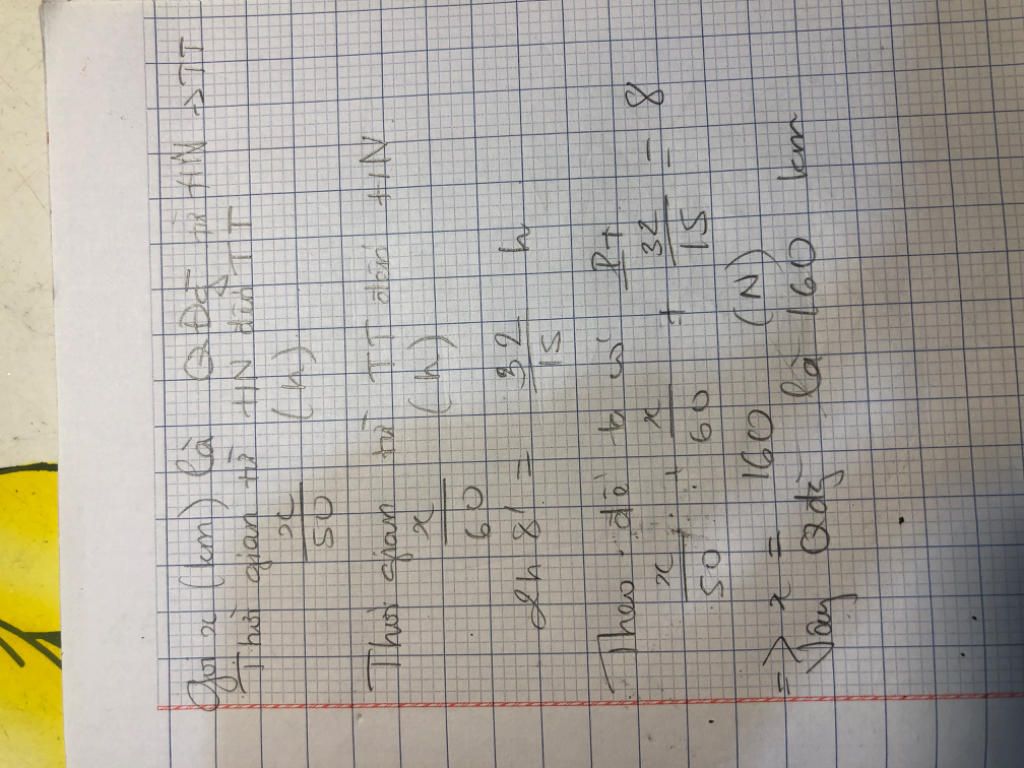 Gọi x (km) là QĐg từ HN -> TT
Thời gian từ HN đến TT
x/50 (h)
Thời gian từ TT đến HN
x/60 (h)
2h 8' = 32/15 h
Theo đề ta có Pt
x/50 + x/60 + 32/15 = 8
=> x = 160 (N)
Vậy Qđg là 160 km